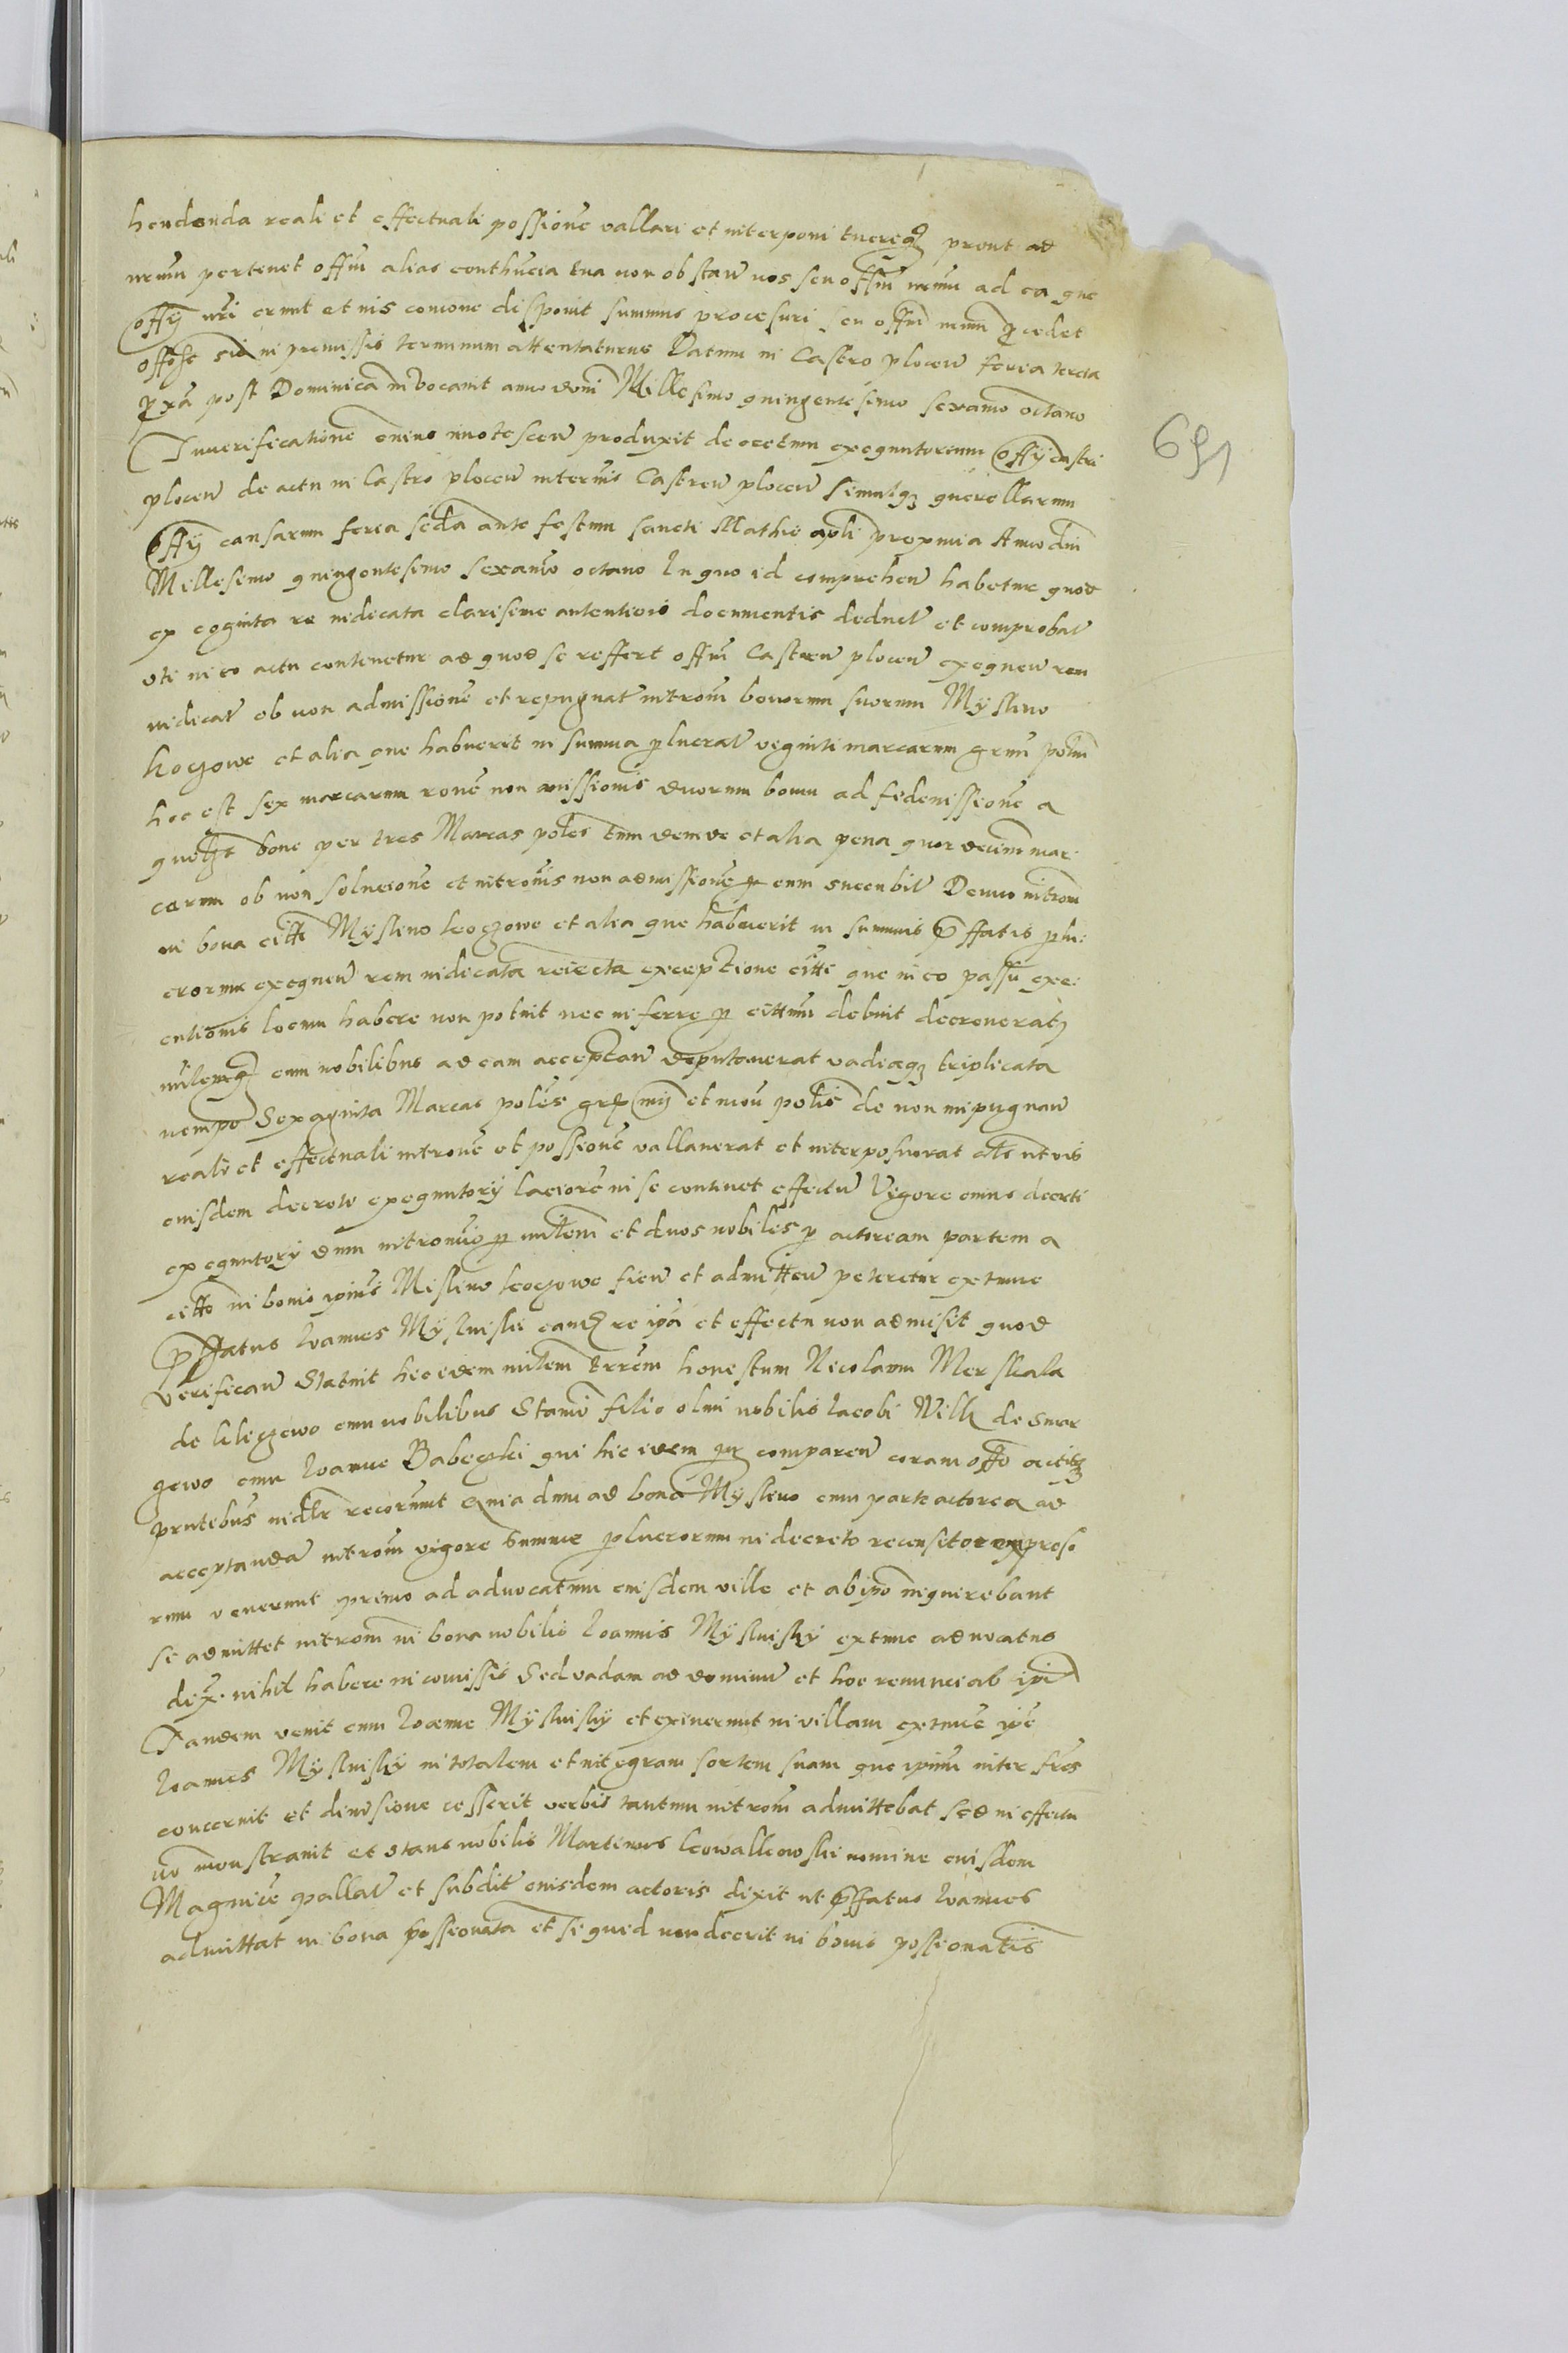 hendenda reali et effectuali possione vallari et interponi tuereq prout ad
nrmm pertenet offm alias conthucia tua non obstan nos seu offm nrmm ad ea que
offy nri ernnt et nis comone disponit summus procesuri seu offm nrmm pcedet
in premissis terminum attentaturus Datum in Castro plocen feria tercia
pxa post Dominica Invocavit anno domi Millesimo quingentesimo sexamo octavo
Inverificatione innotescen produxit decretum exeguntorium Offy castri
plocen de actu in Castro plocen Castren plocen simulq querellarum
Offy causarum feria seda ante festum sancti Mathie apli proxmia Anno dni
Millesimo quingentesimo sexamo octavo In quo id comprehen habetur quod
ex cognita re iudicata clarisime autenticis documentis deduct et comprobat
uti in eo actu contenetur ad quod se reffert offm Castren plocen exequen rem
iudicat ob non admissione et repugnat introm bonorum suorum Myslino
koczowe et alia que habuerit in summa plucrat veginti marcarum grm polm
hoc est sex marcarum rone non missionis duorum bonu ad fedemissione a
quolzt bone per tres Marcas poles tum demde et alia pena quordecim mar:
carum ob non solucone et intromis non admissione p eum succubit Demo introm
in bona citti Myslino koczowe et alia que habuerit in summis pffatis plu:
crorum exequen rem iudicata reiecta exceptione citti que in eo passu exe:
cutionis locum habere non potuit nec inferre p cittum debuit decreneratq
mlemq cum nobilibus ad eam acceptan deputauerat vadiaqz triplicata
nempe Sexaginta Marcas poles et mon polis de non inpugnan
reali et effectuali introne et possione vallanerat et interposuerat
euisdem decreto exeguntory laciore in se continet effectu Vigore cuius decreti
exeguntory dum intromis p milem et duos nobiles p actoream partem a
citto in bonis ipius Mislino koczowe fien et admitten peteretur extunc
pffatus Ioannes Mysluiski eamq re ipa et effectu non admisit quod
verifican Statuit hic idem milem trrem honestum Nicolaum Mer skala
de kliczewo cum nobilibus Stamo filio olmi nobilis Iacobi Wilk de Smar
gewo cum Ioanne Babeczki qui hic idem comparen coram offo actitz
prntebus recorunt Quia dum ad bona Myslino cum parte actorea ad
acceptanda introm vigore summe plucrorum in decreto recensitorum preso
rum venerunt primo ad advocatum euisdem ville et ab ipo inquirebant
se admittet introm in bona nobilis Ioannis Mysluisky extunc advocatus
dex. nihil habere in comissis Sed vadam ad dominu et hoc renunciab ipi
Tandem venit cum Ioanne Mysluisky et exiverunt in villam extunc ipe
Ioannes Mysluisky in totalem et integram sortem suam que ipium inter fres
concernit et divisione cesserit verbis tantum introm admittebat sed in effectu
no monstranit et stans nobilis Martinus kowalkowski nomine euisdem
Magnice pallat et subdit euisdem actoris dixit ut pffatus Ioannes
admittat in bona possionata et si quid non deerit in bonis possionatis
691